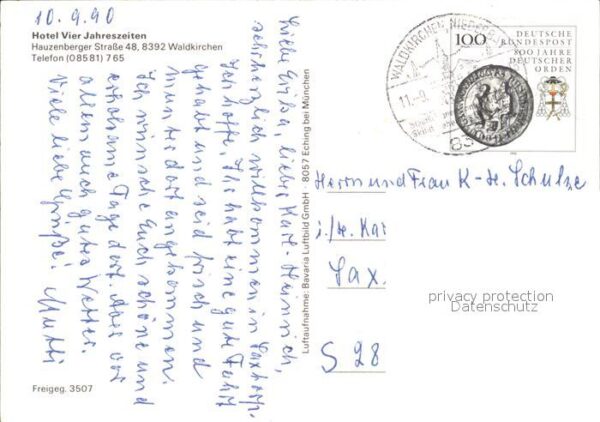 10.9.90
Hotel Vier Jahreszeiten
Hauzenberger Straße 48, 8392 Waldkirchen
Telefon (08581) 765
Liebe liebe Karl-Heinrich,
sehr herzlich willkommen in
Ich hoffe, Ihr habt eine gute Fahrt
gehabt und seid frisch und
munter dort angekommen.
Ich wünsche Euch schöne und
erholsame Tage dort. Aber vor
allem auch gutes Wetter.
Viele liebe Grüße! Mutti
Freigeg. 3507
Luftaufnahme: Bavaria Luftbild GmbH · 8057 Eching bei München
WALDKIRCHEN, NIEDERB
11.-9.
100
DEUTSCHE
BUNDESPOST
800 JAHRE
DEUTSCHER
ORDEN
Herrn und Frau K-H. Schulze
i./H. Kai
Sax.
S 28
privacy protection
Datenschutz